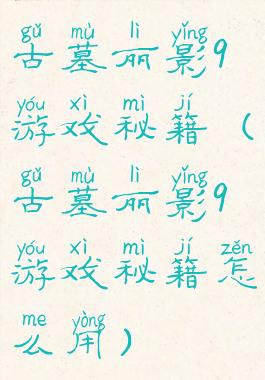 gǔ mù lì yǐng
古墓丽影9
yóu xì mì jí
游戏秘籍（
gǔ mù lì yǐng
古墓丽影9
yóu xì mì jí zěn
游戏秘籍怎
me yòng
么用）